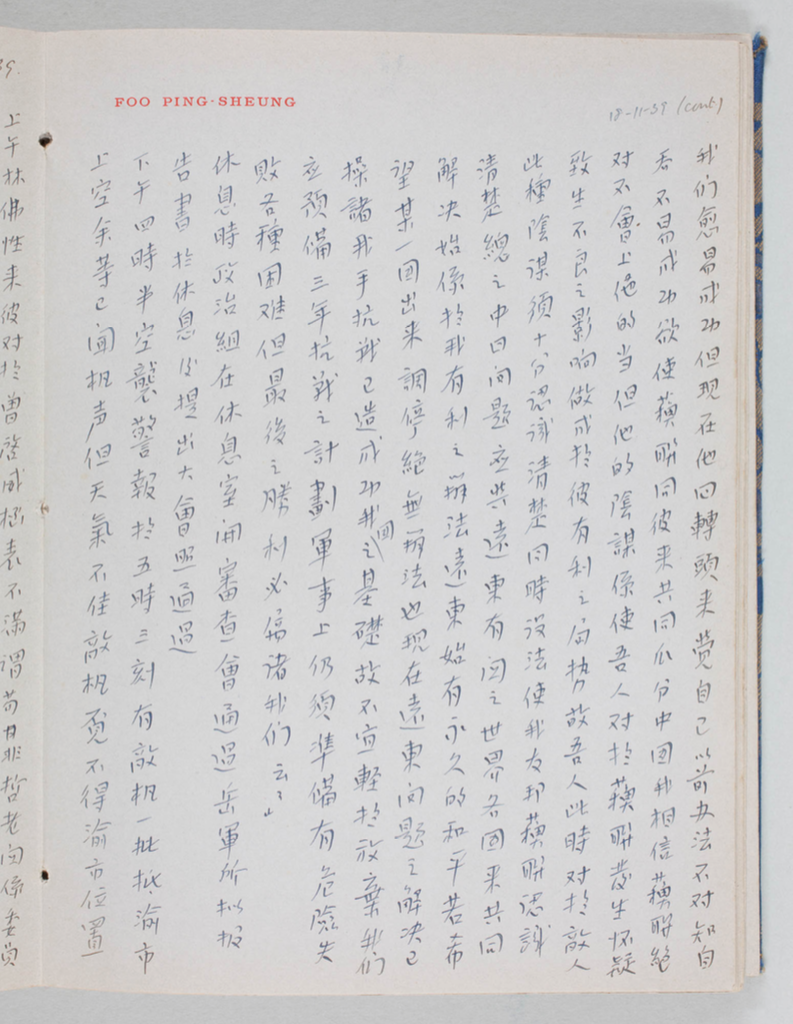 FOO PING-SHEUNG
18-11-39 (cont)
我们愈易成功但现在他回轉頭来覺自己以前办法不对知自
吞不易成功欲使蘓聯同彼来共同瓜分中国我相信蘓聯絕
对不會上他的当但他的陰謀係使吾人对於蘓聯發生怀疑
致生不良之影响做成於彼有利之局势故吾人此時对於敵人
此種陰謀須十分認識清楚同時設法使我友邦蘓聯認識
清楚總之中日问题应与遠東有関之世界各国来共同
解决始係於我有利之辦法遠東始有永久的和平若希
望某一国出来調停絕無辦法也现在遠東问题之解决已
操諸我手抗战已造成功我国之基礎故不宜軽於放棄我们
应預備三年抗戰之計劃軍事上仍須準備有危險失
敗各種困难但最後之勝利必属諸我们云々」
休息時政治組在休息室開審查會通過岳軍所拟报
告書於休息後提出大會照通過
下午四時半空襲警報於五時三刻有敵机一批抵渝市
上空余等已闻机声但天氣不佳敵机覓不得渝市位置
39.
上午林佛性来彼对於曾啓威極表不滿謂苟非哲老関係委員